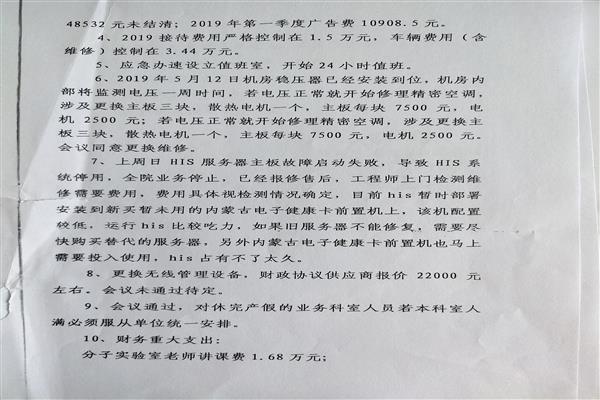 48532 元未结清；2019 年第一季度广告费 10908.5 元。
4、2019 接待费用严格控制在 1.5 万元，车辆费用（含
维修）控制在 3.44 万元。
5、应急办速设立值班室，开始 24 小时值班。
6、2019 年 5 月 12 日机房稳压器已经安装到位，机房内
部将监测电压一周时间，若电压正常就开始修理精密空调，
涉及更换主板三块，散热电机一个，主板每块 7500 元，电
机 2500 元；若电压正常就开始修理精密空调，涉及更换主
板三块，散热电机一个，主板每块 7500 元，电机 2500 元。
会议同意更换维修。
7、上周日 HIS 服务器主板故障启动失败，导致 HIS 系
统停用，全院业务停止，已经报修售后，工程师上门检测维
修需要费用，费用具体视检测情况确定，目前 his 暂时部署
安装到新买暂未用的内蒙古电子健康卡前置机上，该机配置
较低，运行 his 比较吃力，如果旧服务器不能修复，需要尽
快购买替代的服务器，另外内蒙古电子健康卡前置机也马上
需要投入使用，his 占有不了太久。
8、更换无线管理设备，财政协议供应商报价 22000 元
左右。会议未通过待定。
9、会议通过，对休完产假的业务科室人员若本科室人
满必须服从单位统一安排。
10、财务重大支出：
分子实验室老师讲课费 1.68 万元；